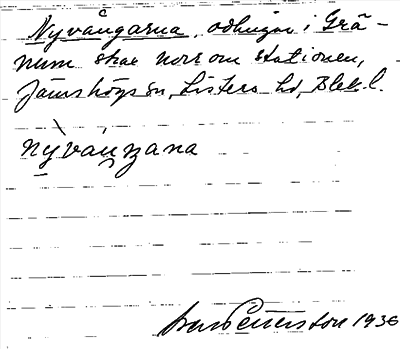 Nyvångarna, odlingar i Grä-
num strax norr om stationen,
Jämshögs sn, Listers hd, Blek. l.
nỳváŋana
Pettersson 1936